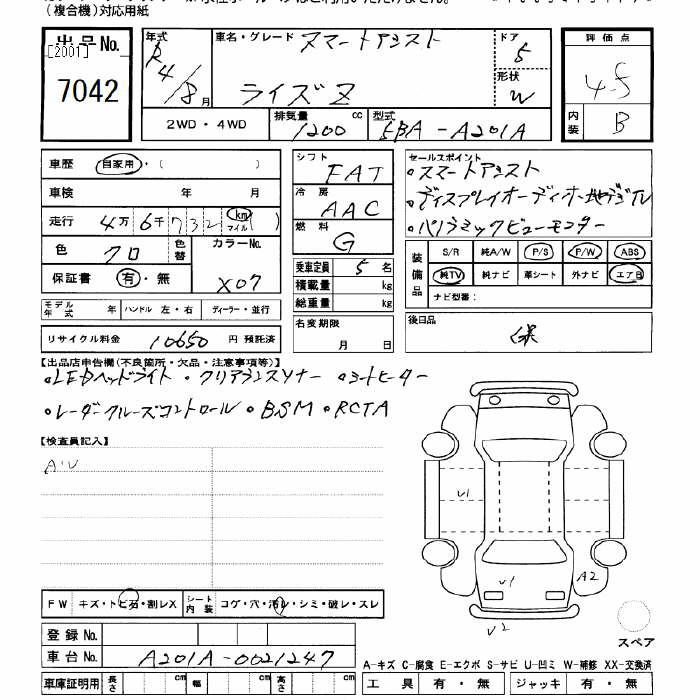 (複合機)対応用紙
出品No.
[2001]
7042
年式
R4/8月
車名・グレード スマートアシスト
ライズ Z
ドア
5
形状
W
評価点
4.5
内装
B
2WD・4WD
排気量
1200 cc
型式
5BA-A201A
車歴 自家用・( )
車検 年 月
走行 4万6千732 km マイル ( )
色 クロ
色替
カラーNo.
X07
保証書 有・無
モデル年式 年 ハンドル 左・右 ディーラー・並行
リサイクル料金 10650 円 預託済
シフト
FAT
冷房
AAC
燃料
G
乗車定員 5 名
積載量 kg
総重量 kg
名変期限
月 日
セールスポイント
・スマートアシスト
・ディスプレイオーディオ・地デジTV
・パノラミックビューモニター
装備品
S/R 純A/W P/S P/W ABS
純TV 純ナビ 革シート 外ナビ エアB
ナビ型番:
後日品
保
【出品店申告欄(不良箇所・欠品・注意事項等)】
・LEDヘッドライト・クリアランスソナー・シートヒーター
・レーダークルーズコントロール・BSM・RCTA
【検査員記入】
A'U
U1
U1
A2
U2
スペア
FW キズ・トビ石・割レX
シート内装 コゲ・穴・汚レ・シミ・破レ・スレ
登録No.
車台No. A201A-0021247
車庫証明用 長さ cm 幅 cm 高さ cm
A-キズ C-腐食 E-エクボ S-サビ U-凹ミ W-補修 XX-交換済
工具 有・無 ジャッキ 有・無